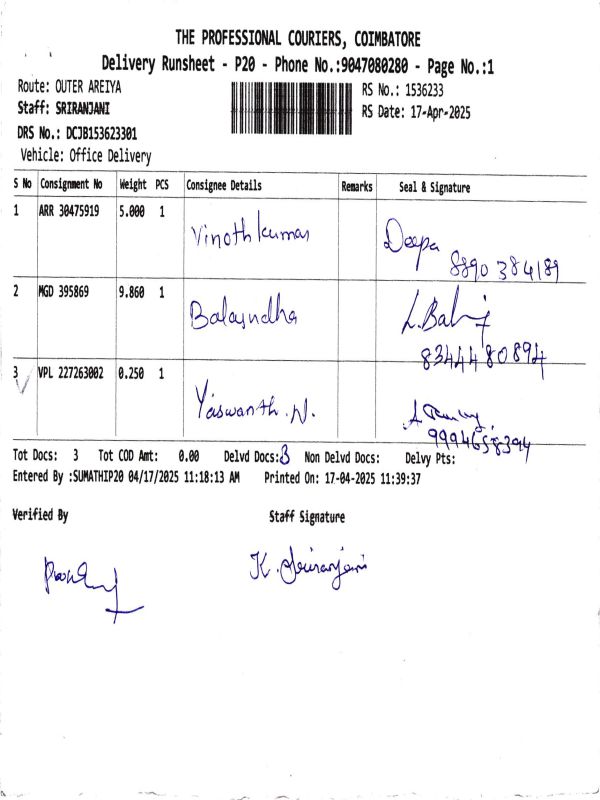 THE PROFESSIONAL COURIERS, COIMBATORE
Delivery Runsheet - P20 - Phone No.:9047080280 - Page No.:1
Route: OUTER AREIYA RS No.: 1536233
Staff: SRIRANJANI RS Date: 17-Apr-2025
DRS No.: DCJB153623301
Vehicle: Office Delivery
S No Consignment No Weight PCS Consignee Details Remarks Seal & Signature
1 ARR 30475919 5.000 1 Vinoth kumar Deepa
8890384189
2 MGD 395869 9.860 1 Balasudha
8344480894
3 VPL 227263002 0.250 1 Yaswanth.N.
9994658394
Tot Docs: 3 Tot COD Amt: 0.00 Delvd Docs: 3 Non Delvd Docs: Delvy Pts:
Entered By :SUMATHIP20 04/17/2025 11:18:13 AM Printed On: 17-04-2025 11:39:37
Verified By Staff Signature
K. Sriranjani